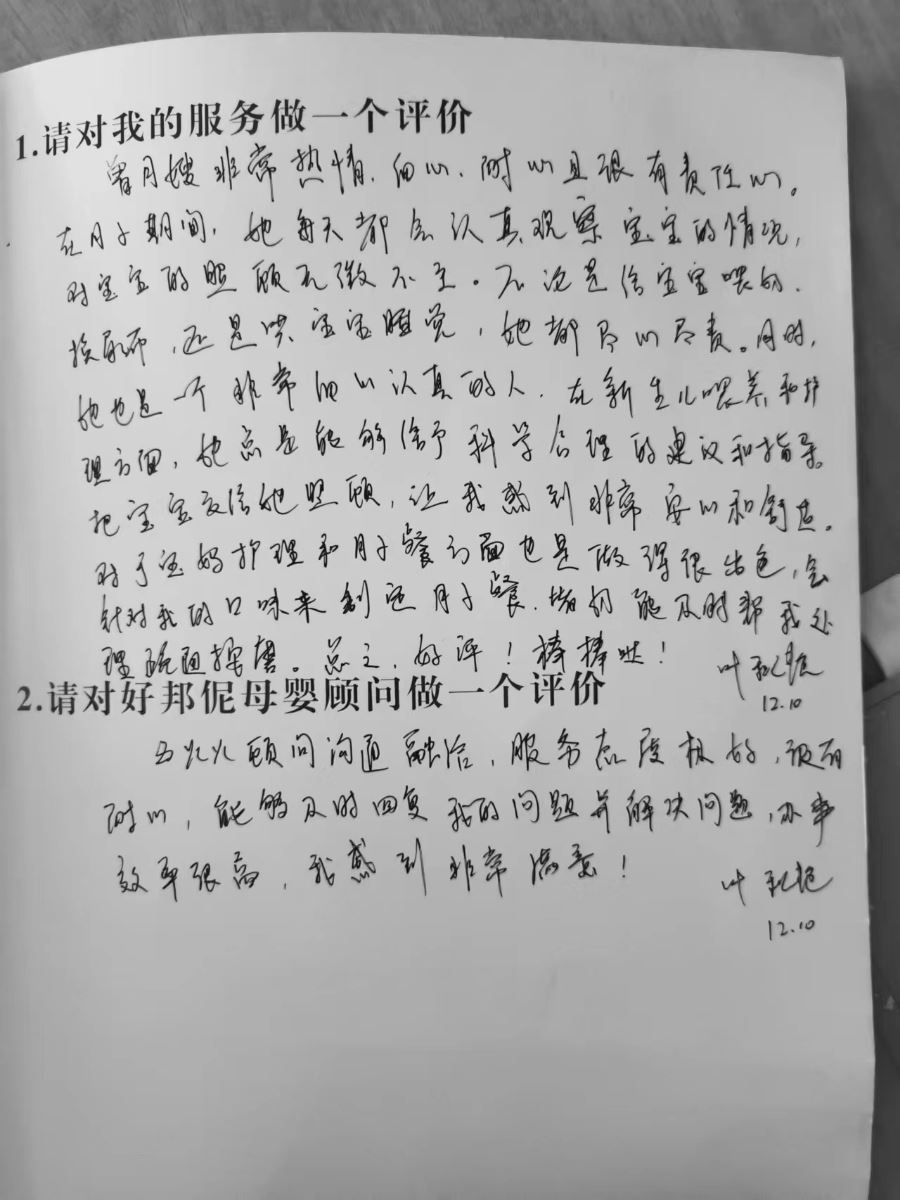 1.请对我的服务做一个评价
曾月嫂非常热情、细心、耐心且很有责任心。
在月子期间,她每天都会认真观察宝宝的情况,
对宝宝的照顾无微不至。不论是给宝宝喂奶、
换尿布,还是哄宝宝睡觉,她都尽心尽责。同时,
她也是一个非常细心认真的人,在新生儿喂养和护
理方面,她总是能够给予科学合理的建议和指导。
把宝宝交给她照顾,让我感到非常安心和舒适。
对于宝妈护理和月子餐方面也是做得很出色,会
针对我的口味来制定月子餐,能及时帮我处
理。总之,好评!棒棒哒!
叶
12.10
2.请对好邦伲母婴顾问做一个评价
顾问沟通融洽,服务态度极好,很有
耐心,能够及时回复我的问题并解决问题,办事
效率很高,我感到非常满意!
叶
12.10